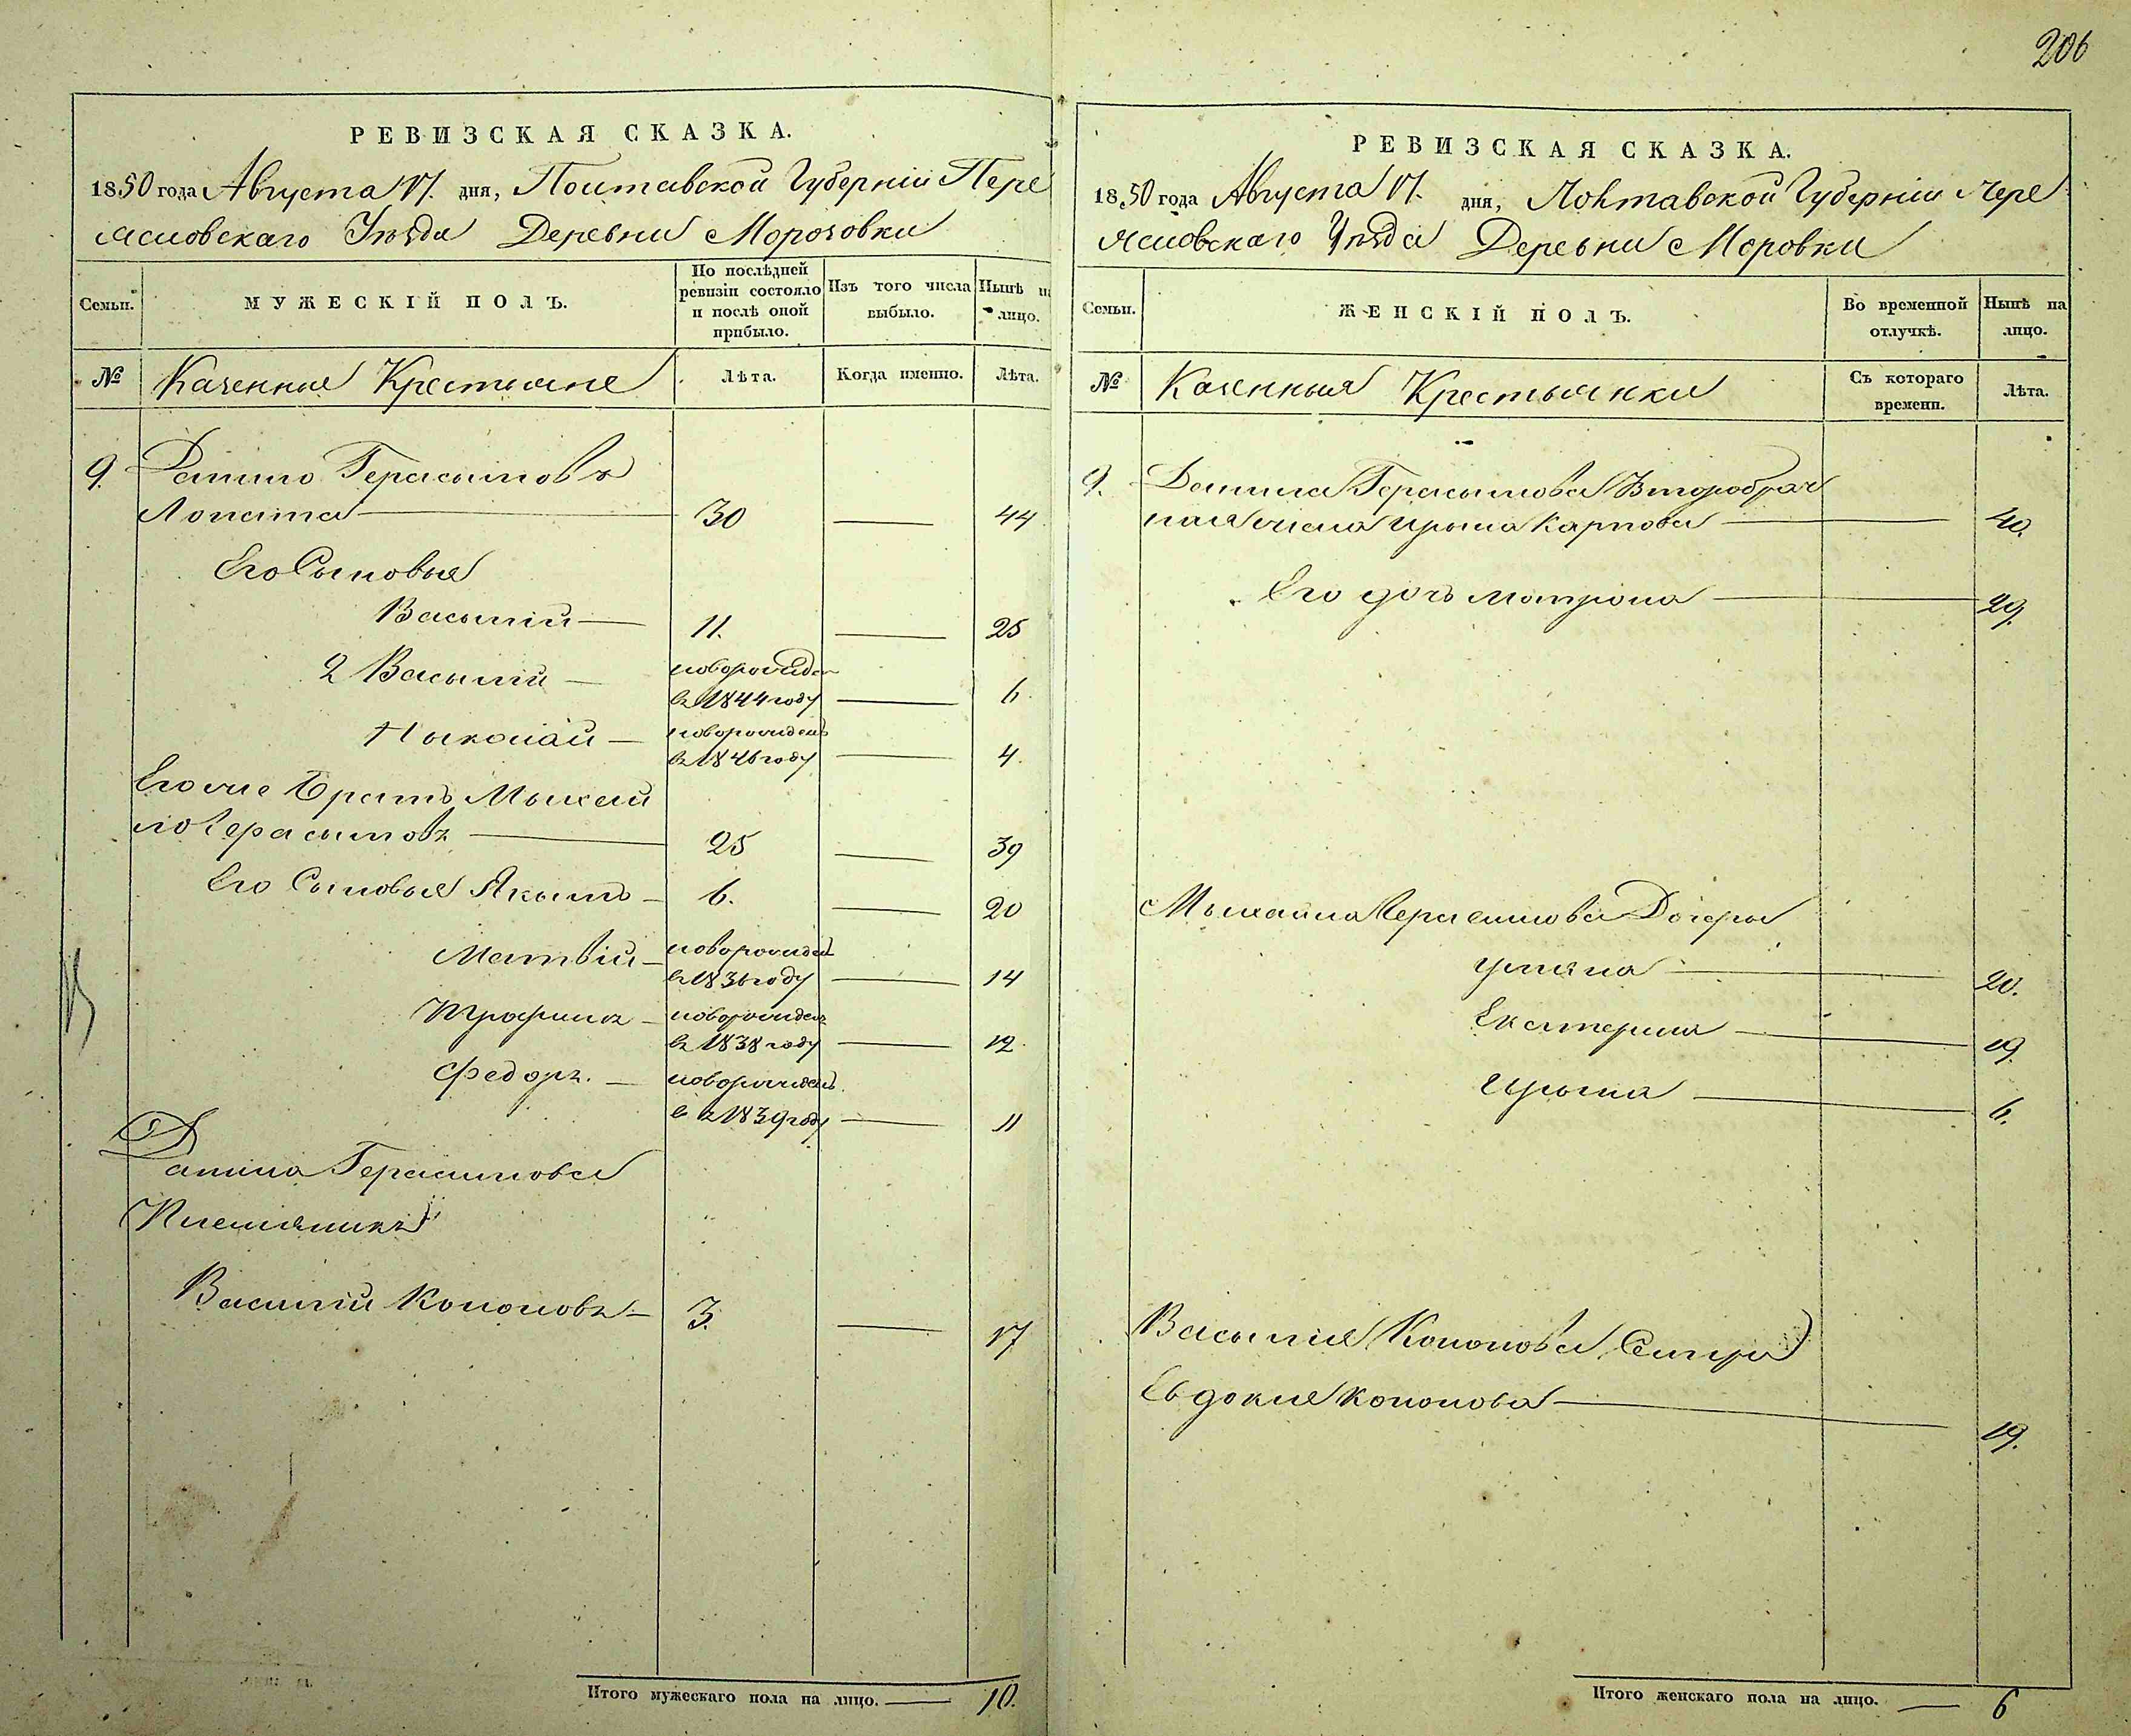 206
РЕВИЗСКАЯ СКАЗКА.
1850 года Августа 17. дня, Полтавской Губерніи Пере
яславскаго Уѣзда Деревни Морозовки
Семьи.
МУЖЕСКІЙ ПОЛЪ.
По послѣдней ревизіи состояло и послѣ оной прибыло.
Изъ того числа выбыло.
Нынѣ на лицо.
№ Казенные Крестьяне
Лѣта.
Когда именно.
Лѣта.
9. Данило Герасимовъ
Лопата 30 44
Его Сыновья
Васылій 11. 25
2 Васылій новорожден
въ 1844 году 6
Ныколай новорожденъ
въ 1846 году 4.
Его же братъ Мыхай
ло Герасымовъ 25 39
Его Сыновья Якымъ 6. 20
Матвій новорожден
въ 1836 году 14
Трофимъ новорожденъ
въ 1838 году 12.
Федоръ. новорожденъ
въ 1839 году 11
Данила Герасимова
Племяникъ
Василій Кононовъ 3. 17
Итого мужескаго пола на лицо. 10.
РЕВИЗСКАЯ СКАЗКА.
1850 года Августа 17. дня, Полтавской Губерніи Пере
яславскаго Уѣзда Деревни Моровки
Семьи.
ЖЕНСКІЙ ПОЛЪ.
Во временной отлучкѣ.
Нынѣ на лицо.
№ Казенныя Крестьянки
Съ котораго времени.
Лѣта.
9. Данила Герасымова Второбрач
ная жена Ирына Карпова 40.
Его дочь Матрона 29.
Мыхайла Герасимова Дочеры
Ульяна 20.
Екатерина 19.
Ирына 6.
Васылія Кононова Сестра
Евдокия Кононова 19.
Итого женскаго пола на лицо. 6